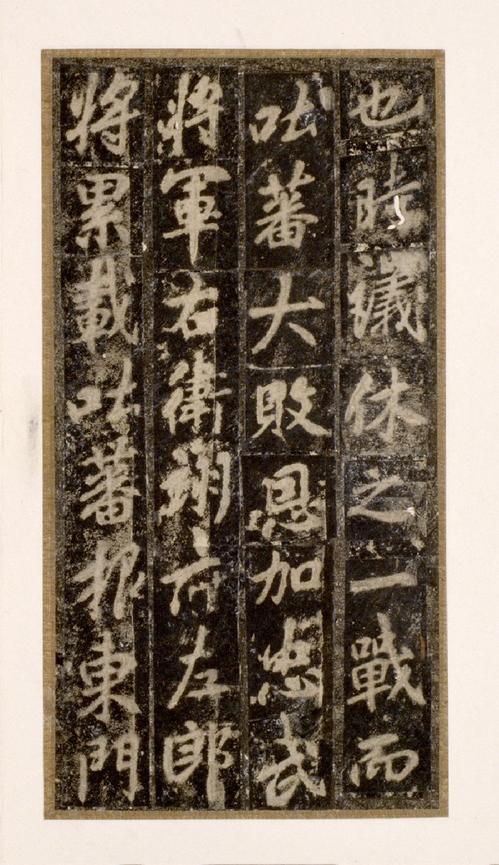 也時議休之一戰而
吐蕃大敗恩加忠武
將軍右衛翊府左郎
將累載吐蕃報東門